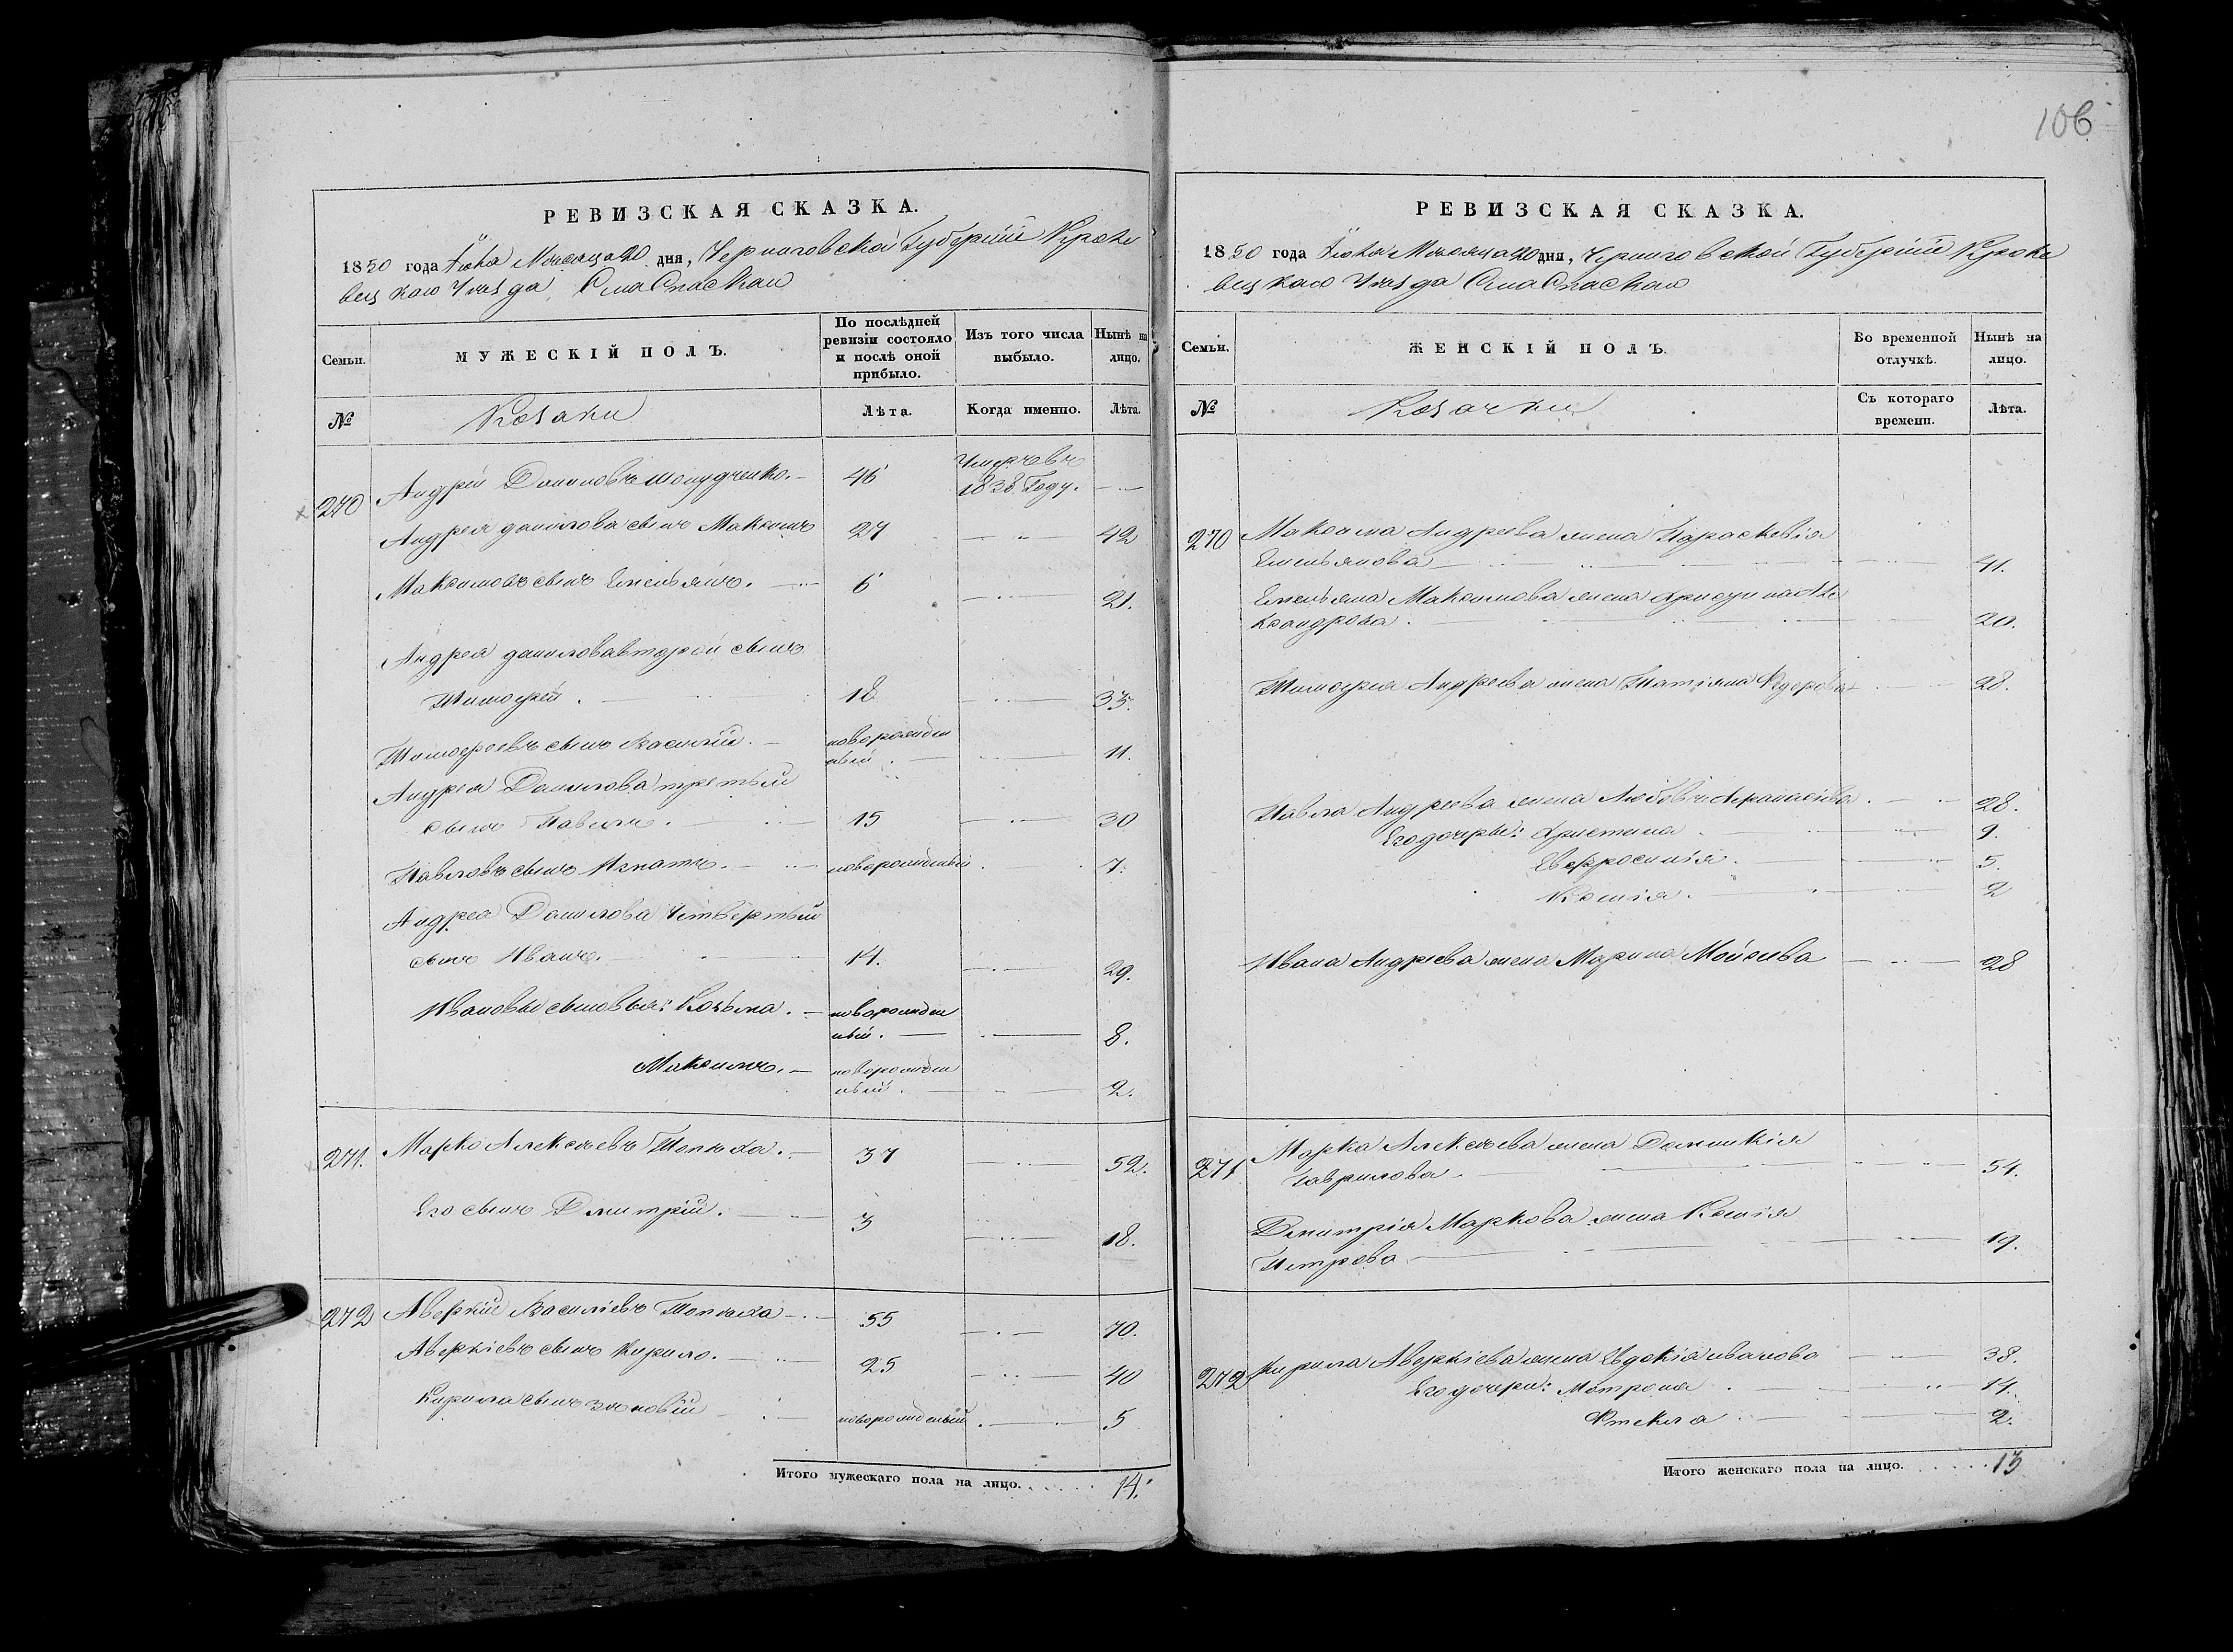 106
РЕВИЗСКАЯ СКАЗКА.
1850 года Іюня Месяца 20 дня, Черниговской Губерніи Кроле
вецкаго Уезда, Села Спаскаго
Семьи.
МУЖЕСКІЙ ПОЛЪ.
По послѣдней ревизіи состояло и послѣ оной прибыло.
Изъ того числа выбыло.
Нынѣ на лицо.
№
Козаки
Лѣта.
Когда именно.
Лѣта.
270 Андрей Даниловъ 46 Умеръ въ
1838 Году.
Андрея Данилова сынъ Максимъ 27 42
Максимовъ сынъ Емельянъ. 6 21.
Андрея Данилова второй сынъ
Тимофей. 18 33.
Тимофеевъ сынъ Василий. новорожден
ный. 11.
Андрея Данилова третьий
сынъ Павелъ. 15 30
Павловъ сынъ Игнатъ. новорожденый. 7.
Андрея Данилова Четвертый
сынъ Иванъ. 14. 29.
Ивановы сыновья: Козьма. новорожден
ный. 8.
Максимъ. новорожден
ный. 2.
271. Марко Алексѣевъ 37 52.
Его сынъ Дмитрій. 3 18.
272 Аверкій Василіевъ 55 70.
Аверкіевъ сынъ Кирило. 25 40
Кирила сынъ Зѣновій новорожденый. 5
Итого мужескаго пола на лицо. 14.
РЕВИЗСКАЯ СКАЗКА.
1850 года Іюня Месяца 20 дня, Черниговской Губерніи Кроле
вецкаго Уезда Села Спаскаго
Семьи.
ЖЕНСКІЙ ПОЛЪ.
Во временной отлучкѣ.
Нынѣ на лицо.
№
Козачки
Съ котораго времени.
Лѣта.
270 Максима Андреева жена Параскевія
Емельянова 41.
Емельяна Максимова жена Христина Але
ксандрова. 20.
Тимофея Андреева жена Татіяна Федорова 28.
Павла Андреева жена Любовъ Афанасіева. 28.
Его дочери: Христина. 9.
Евфросинія. 5.
Ксенія. 2
Ивана Андреева жена Марина Мойсеева 28
271 Марка Алексѣева жена Домникія
Гаврилова 51.
Дмитрія Маркова жена Ксенія
Петрова 19.
272 Кирила Аверкіева жена Евдокія Иванова 38.
Его дочери: Матрона 14.
Фтекла 2.
Итого женскаго пола на лицо. 13